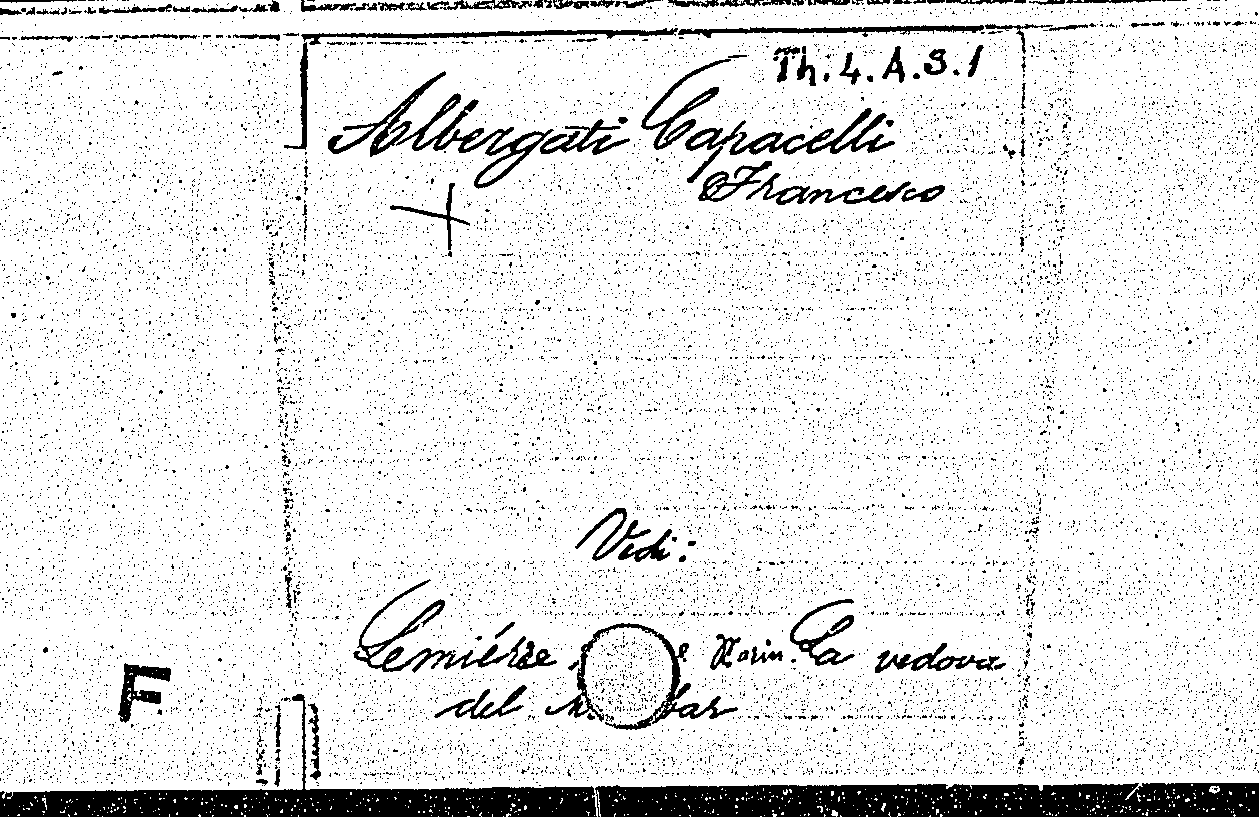 Th. 4. A. 3. 1
Albergati Capacelli
Francesco
Vedi:
Lemiérre e Marin. La vedova
del bar
F